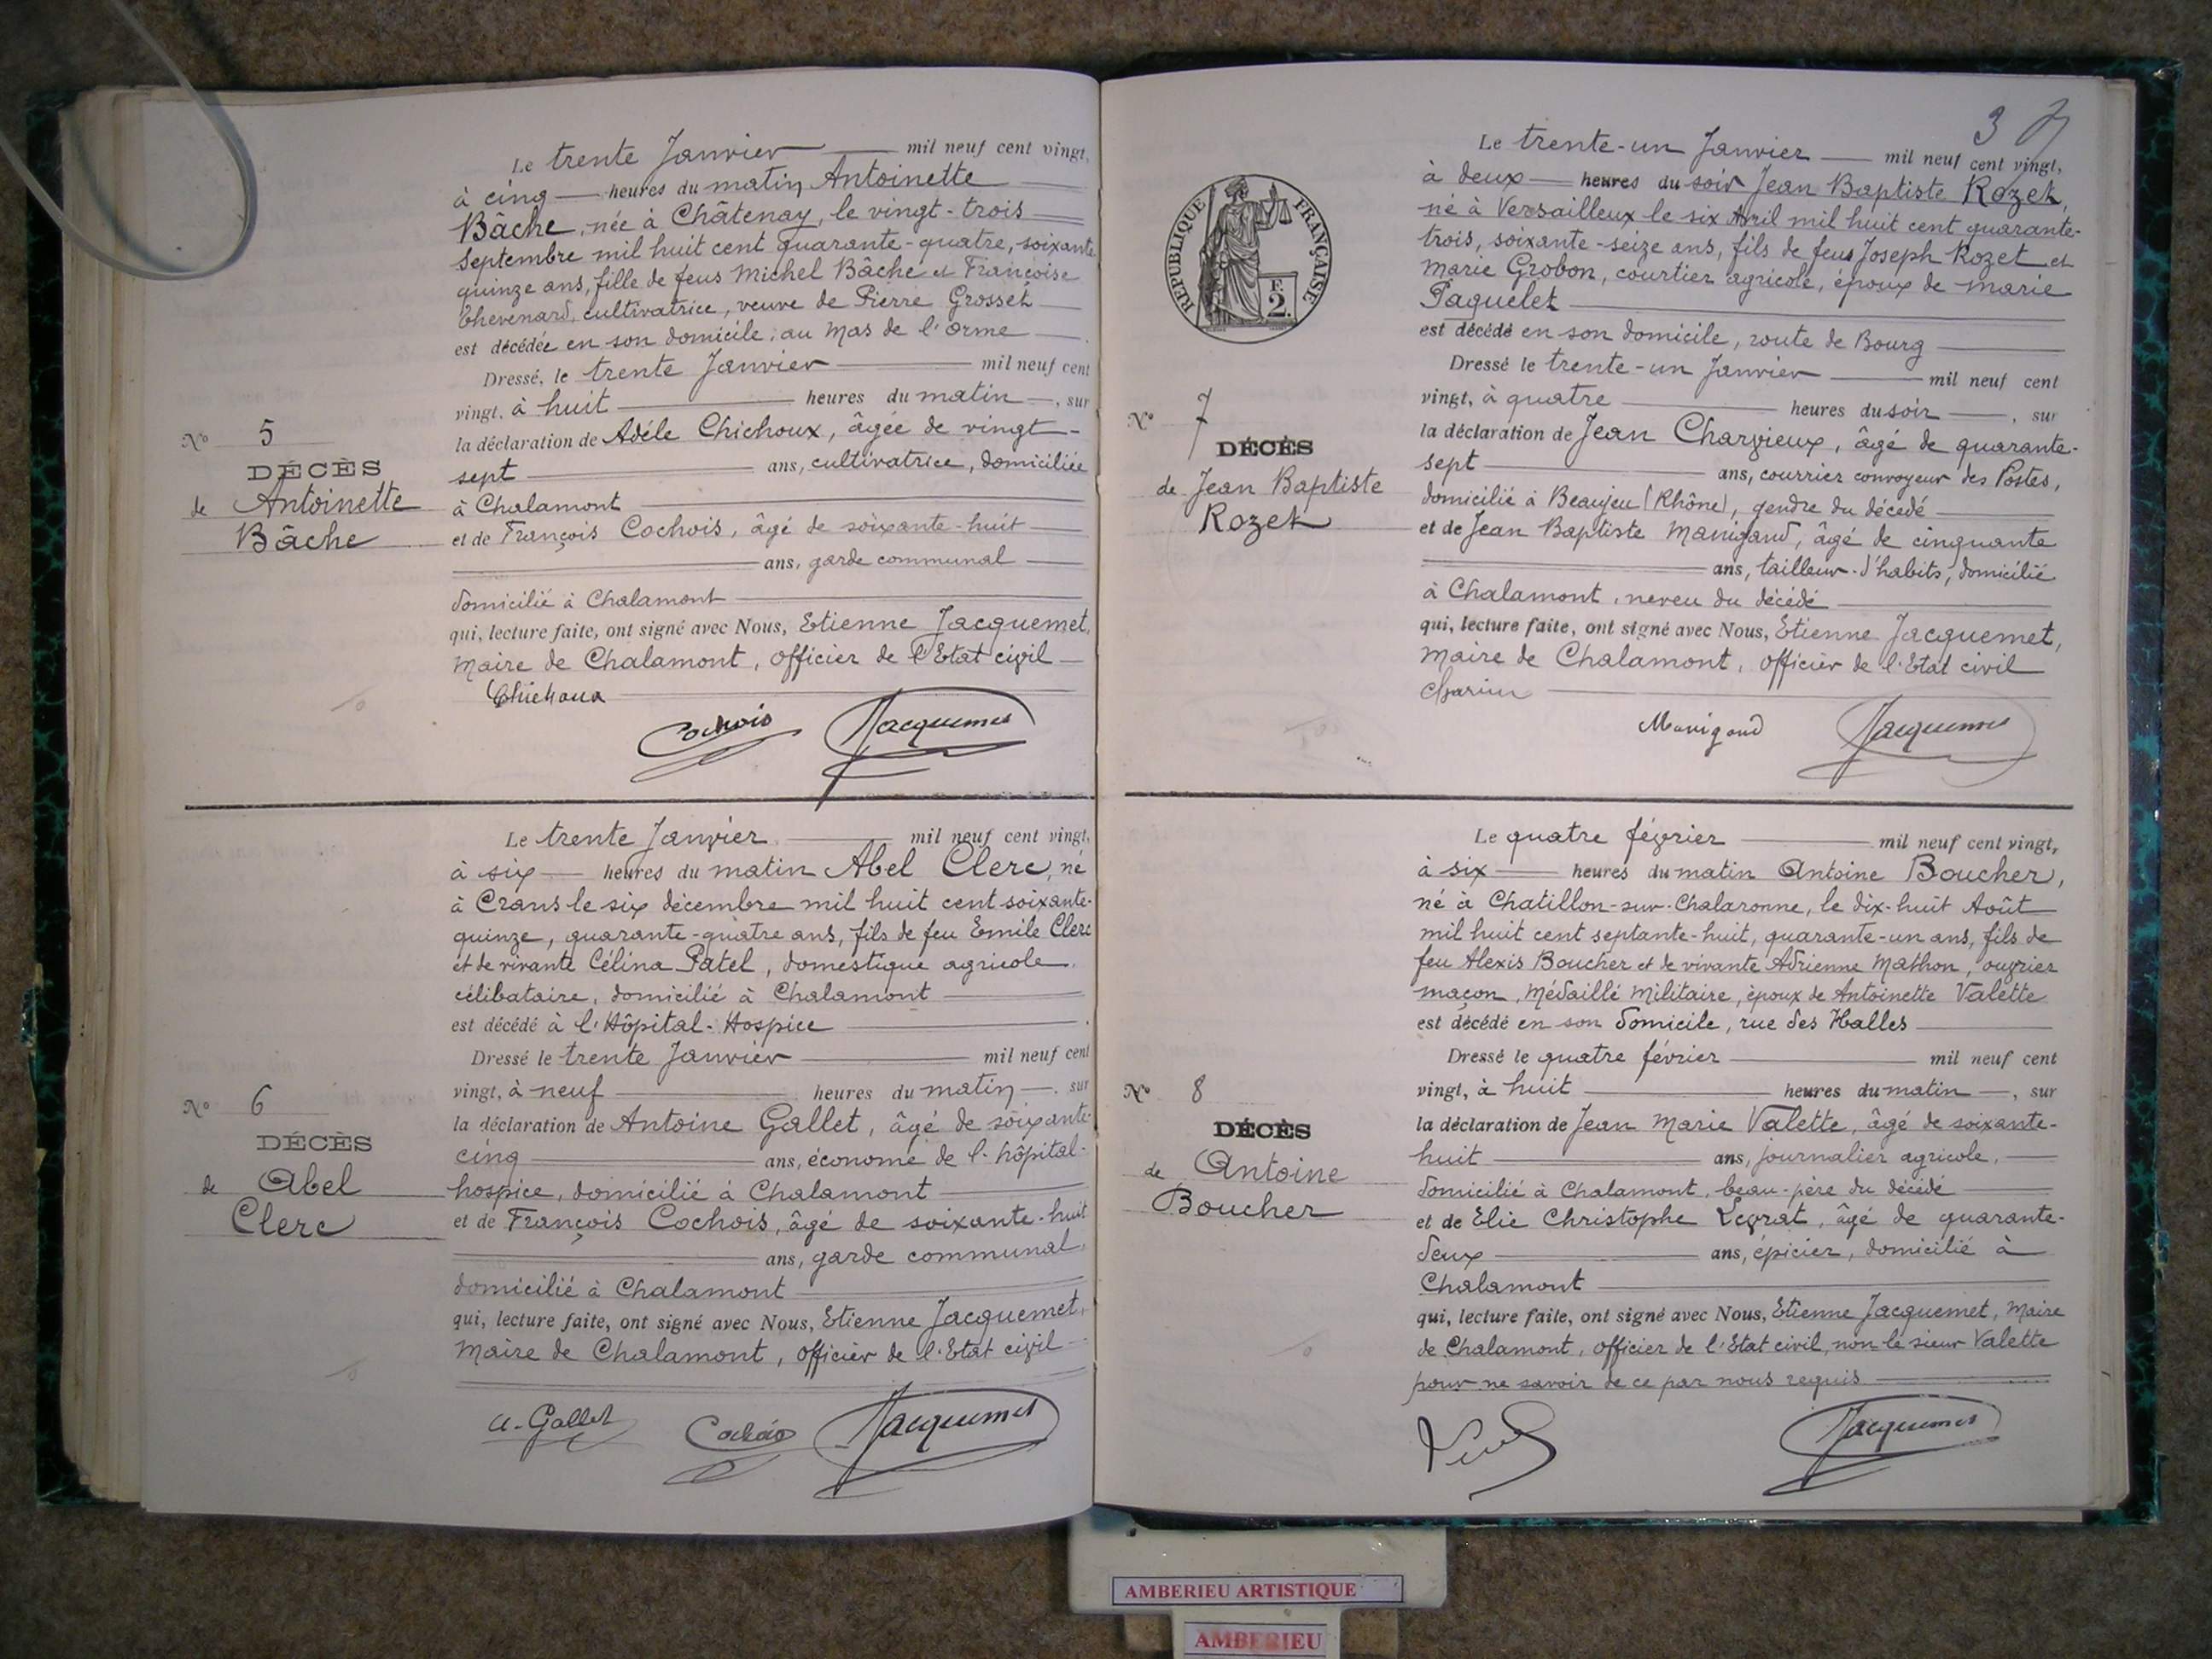 Le trente Janvier mil neuf cent vingt,
à cinq heures du matin Antoinette
Bâche, née à Châtenay, le vingt-trois
Septembre mil huit cent quarante-quatre, soixante
quinze ans, fille de feus Michel Bâche et Françoise
Chevenard, cultivatrice, veuve de Pierre Grosset
est décédée en son domicile, au Mas de l'Orme
Dressé, le trente Janvier mil neuf cent
vingt, à huit heures du matin, sur
la déclaration de Adèle Chichoux, âgée de vingt-
sept ans, cultivatrice, domiciliée
à Chalamont
et de François Cochois, âgé de soixante-huit
ans, garde communal
domicilié à Chalamont
qui, lecture faite, ont signé avec Nous, Etienne Jacquemet,
Maire de Chalamont, Officier de l'Etat civil
Chichoux
Cochois Jacquemet
N° 5
DÉCÈS
de Antoinette
Bâche
Le trente Janvier mil neuf cent vingt,
à six heures du matin Abel Clerc, né
à Crans le six décembre mil huit cent soixante-
quinze, quarante-quatre ans, fils de feu Emile Clerc
et de vivante Célina Patel, domestique agricole,
célibataire, domicilié à Chalamont
est décédé à l'Hôpital-Hospice
Dressé le trente Janvier mil neuf cent
vingt, à neuf heures du matin, sur
la déclaration de Antoine Gallet, âgé de soixante-
cinq ans, économe de l'hôpital-
hospice, domicilié à Chalamont
et de François Cochois, âgé de soixante-huit
ans, garde communal,
domicilié à Chalamont
qui, lecture faite, ont signé avec Nous, Etienne Jacquemet,
Maire de Chalamont, Officier de l'Etat civil
A. Gallet Cochois Jacquemet
N° 6
DÉCÈS
de Abel
Clerc
3
RÉPUBLIQUE FRANÇAISE
F.
2.
Le trente-un Janvier mil neuf cent vingt,
à deux heures du soir Jean Baptiste Rozet,
né à Versailleux le six Avril mil huit cent quarante-
trois, soixante-seize ans, fils de feus Joseph Rozet et
Marie Grobon, courtier agricole, époux de Marie
Paquelet
est décédé en son domicile, route de Bourg
Dressé le trente-un Janvier mil neuf cent
vingt, à quatre heures du soir, sur
la déclaration de Jean Charvieux, âgé de quarante-
sept ans, courrier convoyeur des Postes,
domicilié à Beaujeu (Rhône), gendre du décédé
et de Jean Baptiste Manigand, âgé de cinquante
ans, tailleur d'habits, domicilié
à Chalamont, neveu du décédé
qui, lecture faite, ont signé avec Nous, Etienne Jacquemet,
Maire de Chalamont, Officier de l'Etat civil
Manigand Jacquemet
N° 7
DÉCÈS
de Jean Baptiste
Rozet
Le quatre février mil neuf cent vingt,
à six heures du matin Antoine Boucher,
né à Chatillon-sur-Chalaronne, le dix-huit Août
mil huit cent septante-huit, quarante-un ans, fils de
feu Alexis Boucher et de vivante Adrienne Mathon, ouvrier
maçon, Médaillé Militaire, époux de Antoinette Valette
est décédé en son domicile, rue des Halles
Dressé le quatre février mil neuf cent
vingt, à huit heures du matin, sur
la déclaration de Jean Marie Valette, âgé de soixante-
huit ans, journalier agricole,
domicilié à Chalamont, beau-père du décédé
et de Elie Christophe Levrat, âgé de quarante-
deux ans, épicier, domicilié à
Chalamont
qui, lecture faite, ont signé avec Nous, Etienne Jacquemet, Maire
de Chalamont, Officier de l'Etat civil, non le sieur Valette
pour ne savoir de ce par nous requis
Jacquemet
N° 8
DÉCÈS
de Antoine
Boucher
AMBERIEU ARTISTIQUE
AMBERIEU